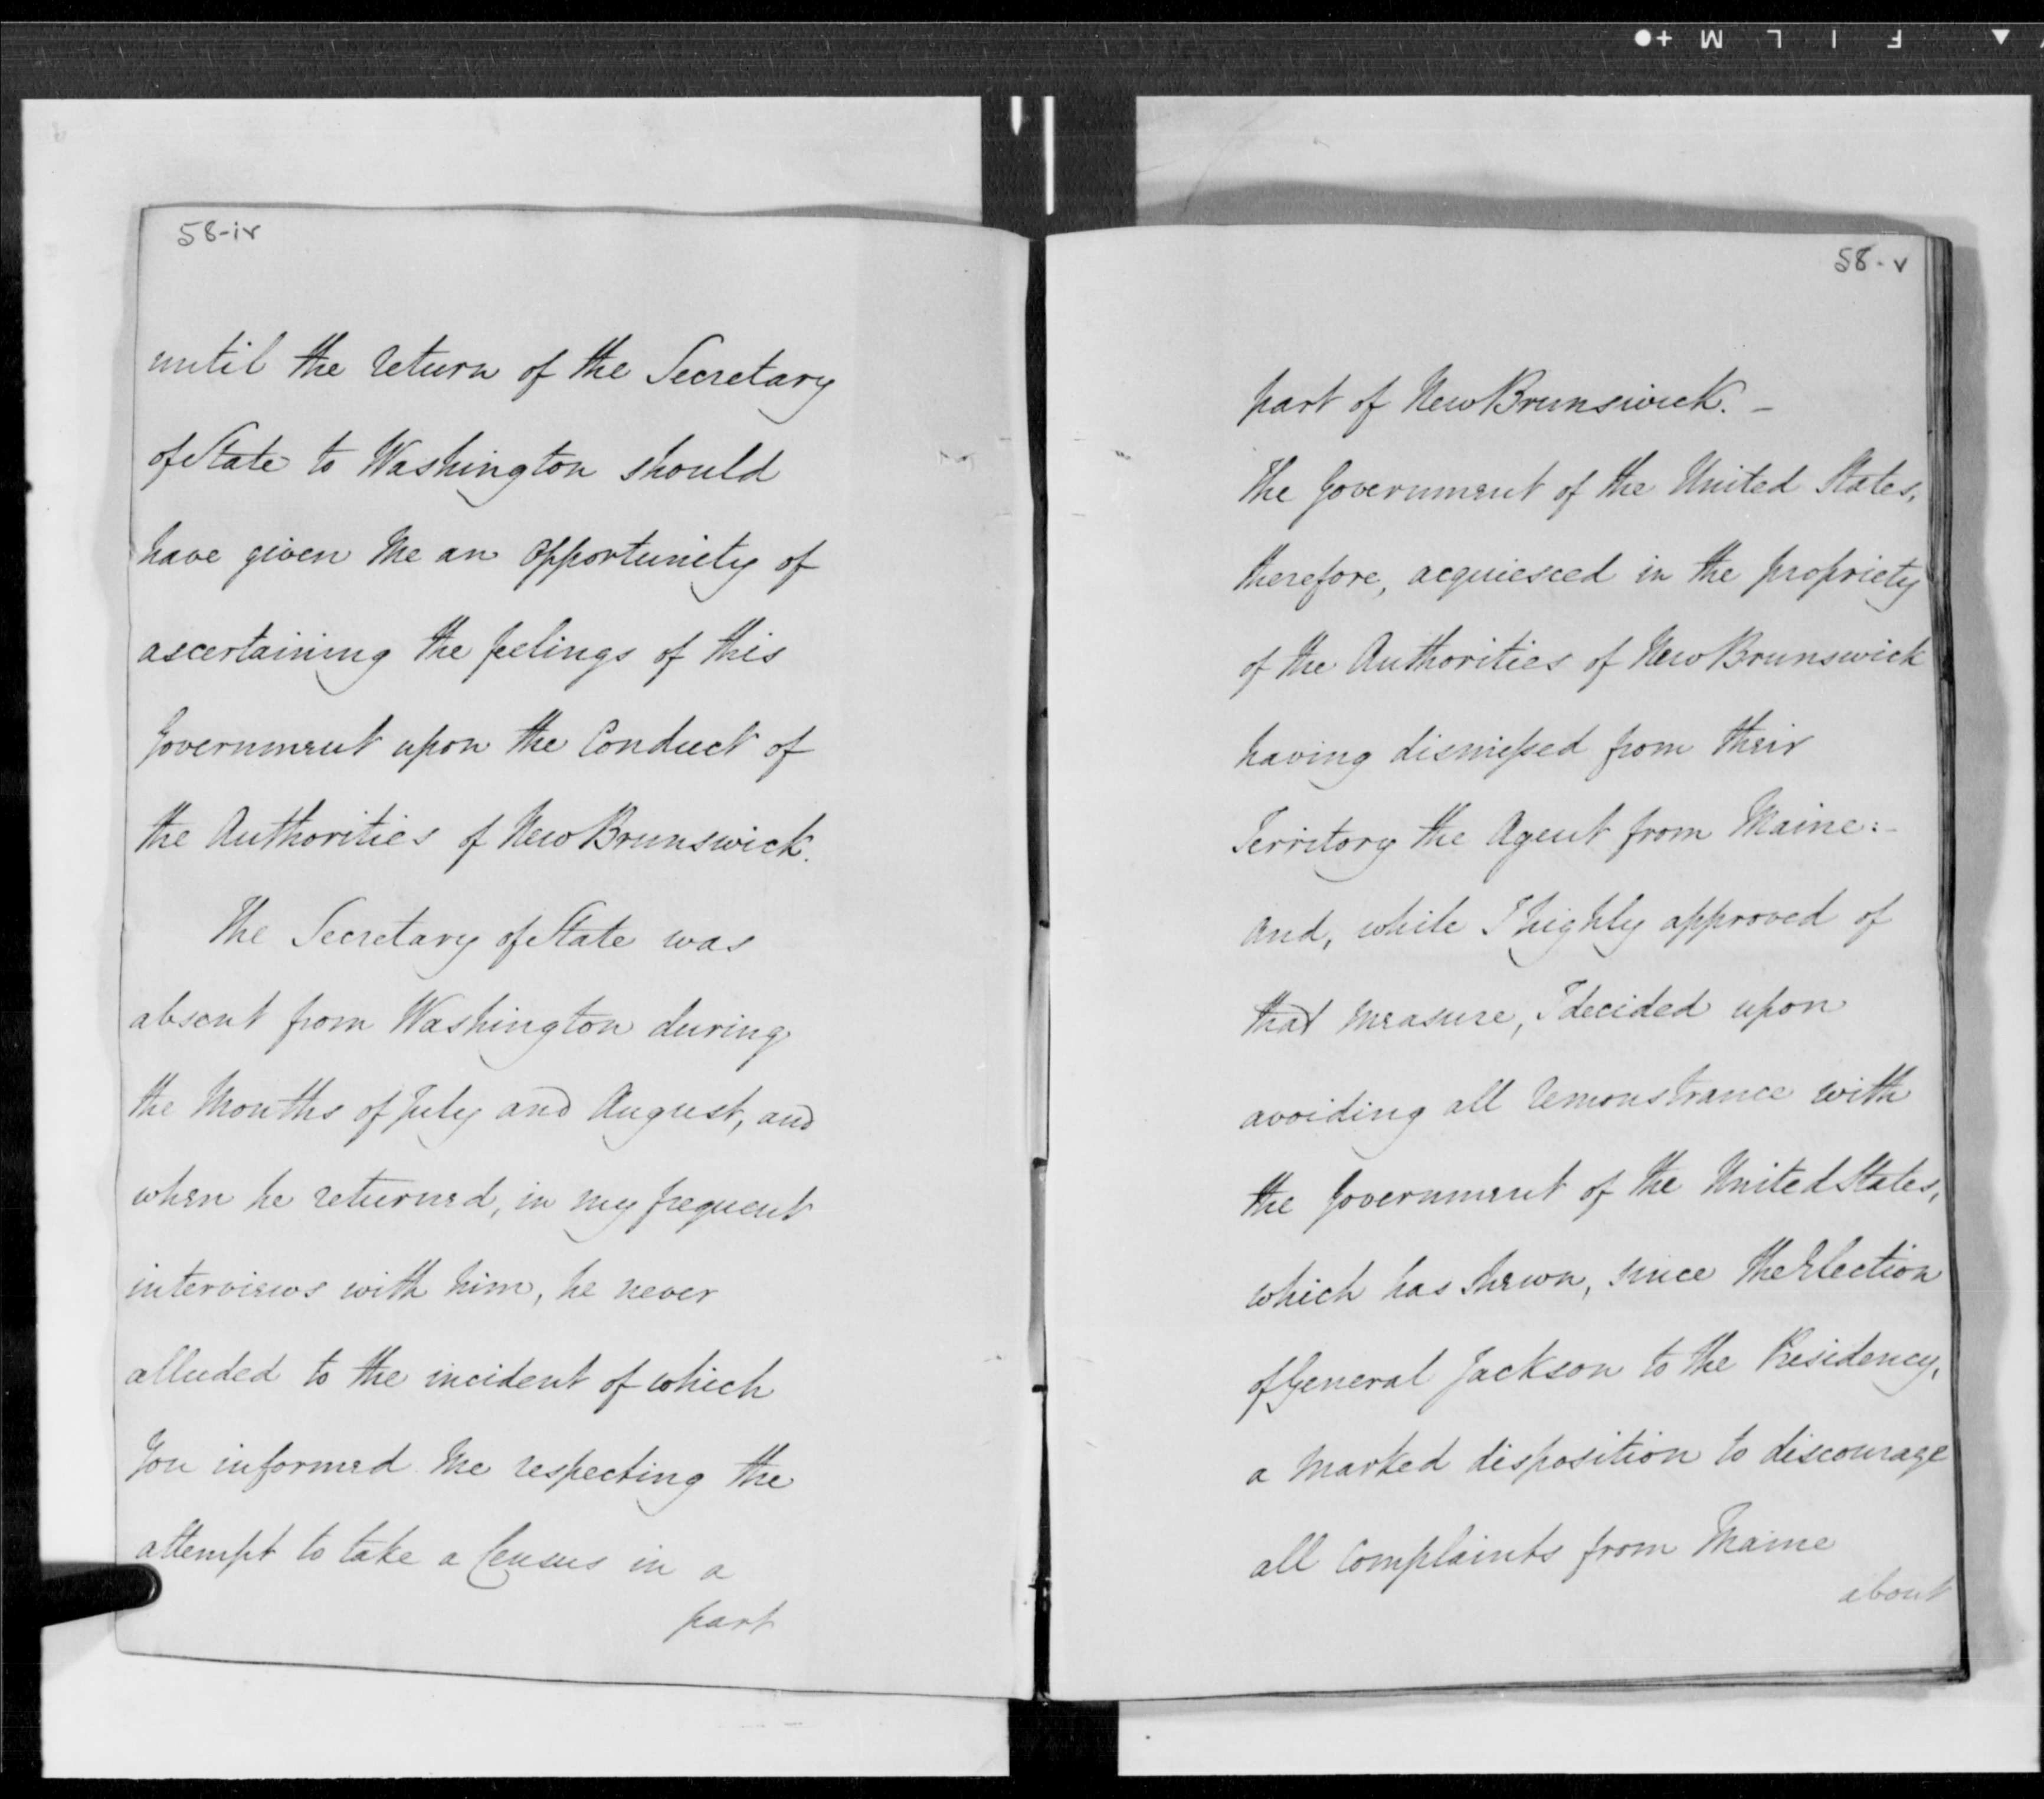 58-iv
until the return of the Secretary
of State to Washington should
have given me an opportunity of
ascertaining the feelings of this
Government upon the Conduct of
the Authorities of New Brunswick.
The Secretary of State was
absent from Washington during
the Months of July and August, and
when he returned, in my frequent
interviews with him, he never
alluded to the incident of which
You informed me respecting the
attempt to take a Census in a
part
FILM
58-v
part of New Brunswick. -
The Government of the United States,
therefore, acquiesced in the propriety
of the Authorities of New Brunswick
having dismissed from their
Territory the Agent from Maine:-
and, while I highly approved of
that measure, I decided upon
avoiding all remonstrance with
the Government of the United States,
which has shewn, since the Election
of General Jackson to the Presidency,
a marked disposition to discourage
all Complaints from Maine
about